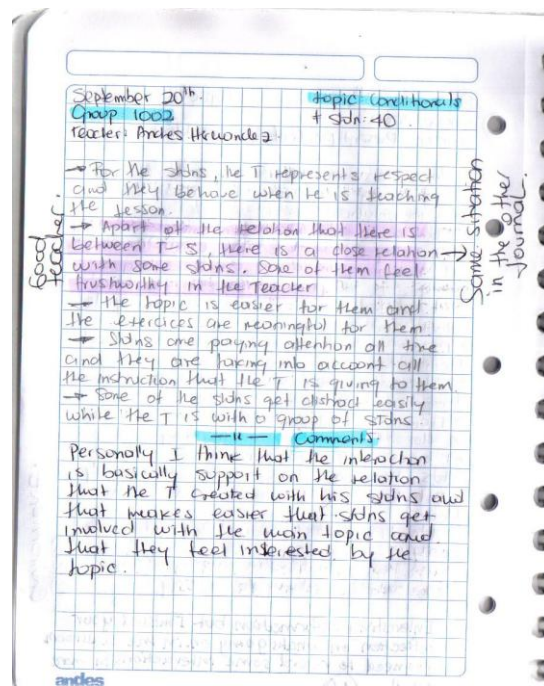 September 20th.
topic Conditionals
Group 1002
# stdn: 40
teacher: Andres Hernandez
→ For the stdns, he T represents respect
and they behave when he is teaching
the lesson.
→ Apart of the relation that there is
between T-S, there is a close relation →
with some stdns. Some of them feel
trustworthy in the Teacher
→ the topic is easier for them and
the exercices are meaningful for them
→ Stdns are paying attention all time
and they are taking into account all
the instruction that the T is giving to them
→ Some of the stdns get distract easily
while the T is with a group of stdns.
Good
teacher.
Same sitation
in the other
Journal.
—11— Comments
Personally I think that the interaction
is basically support on the relation
that the T created with his stdns and
that makes easier that stdns get
involved with the main topic and
that they feel interested by the
topic.
andes